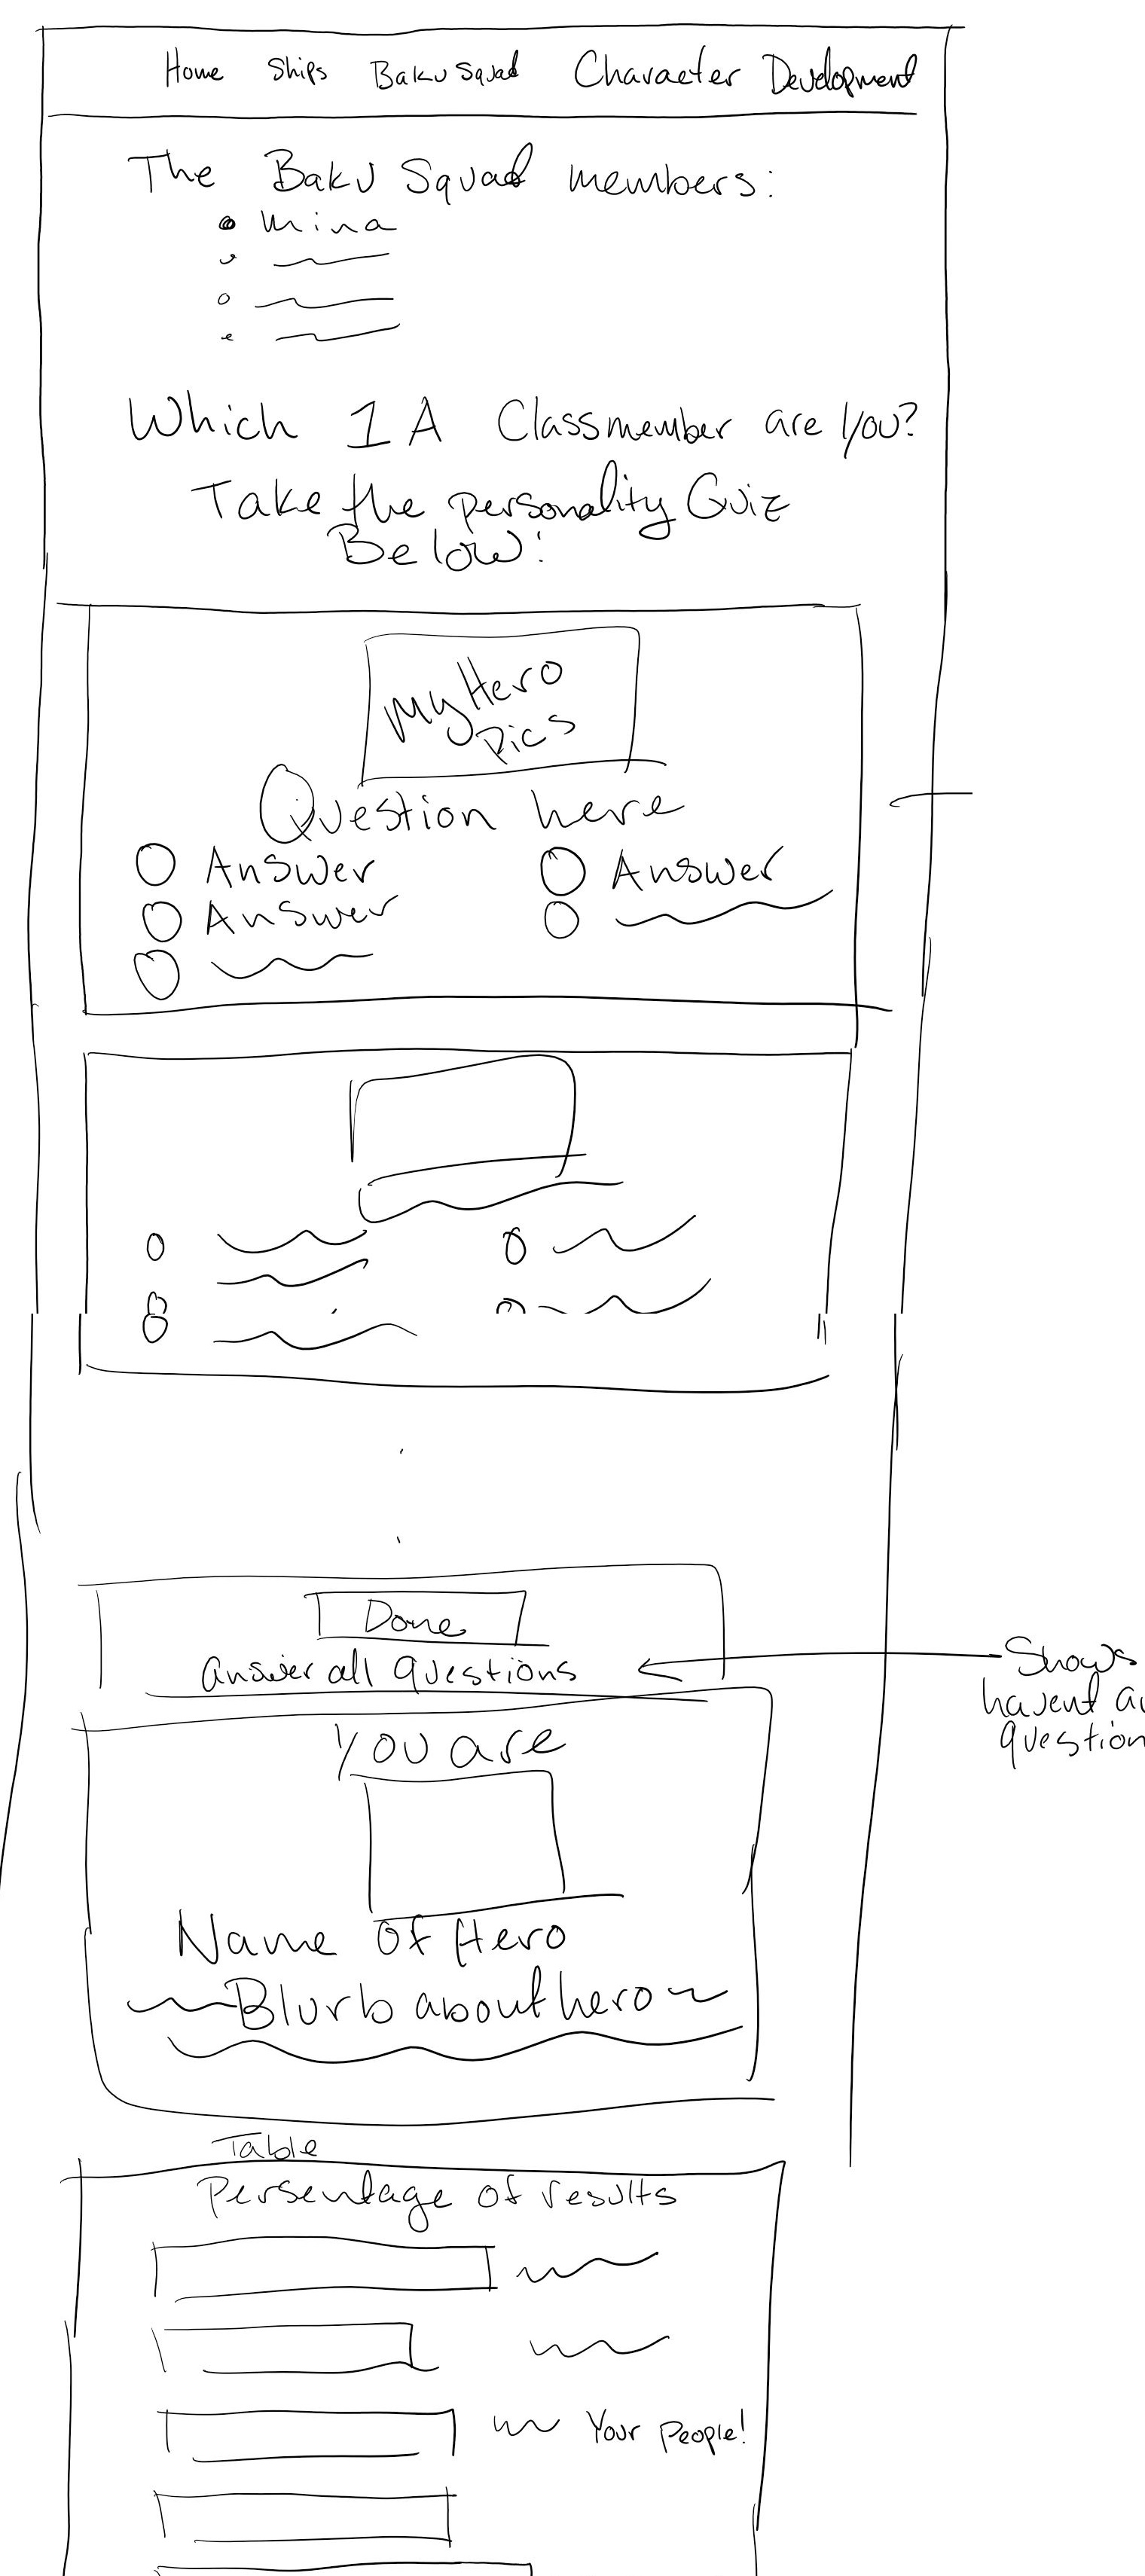 Home Ships Baku Squad Character Development
The Baku Squad members:
Mina
Which 1A Classmember are you?
Take the personality Quiz
Below:
My Hero
Pics
Question here
Answer Answer
Answer
Done
answer all questions
Shows
havent
question
You are
Name of Hero
Blurb about hero
Table
Persentage of results
Your People!